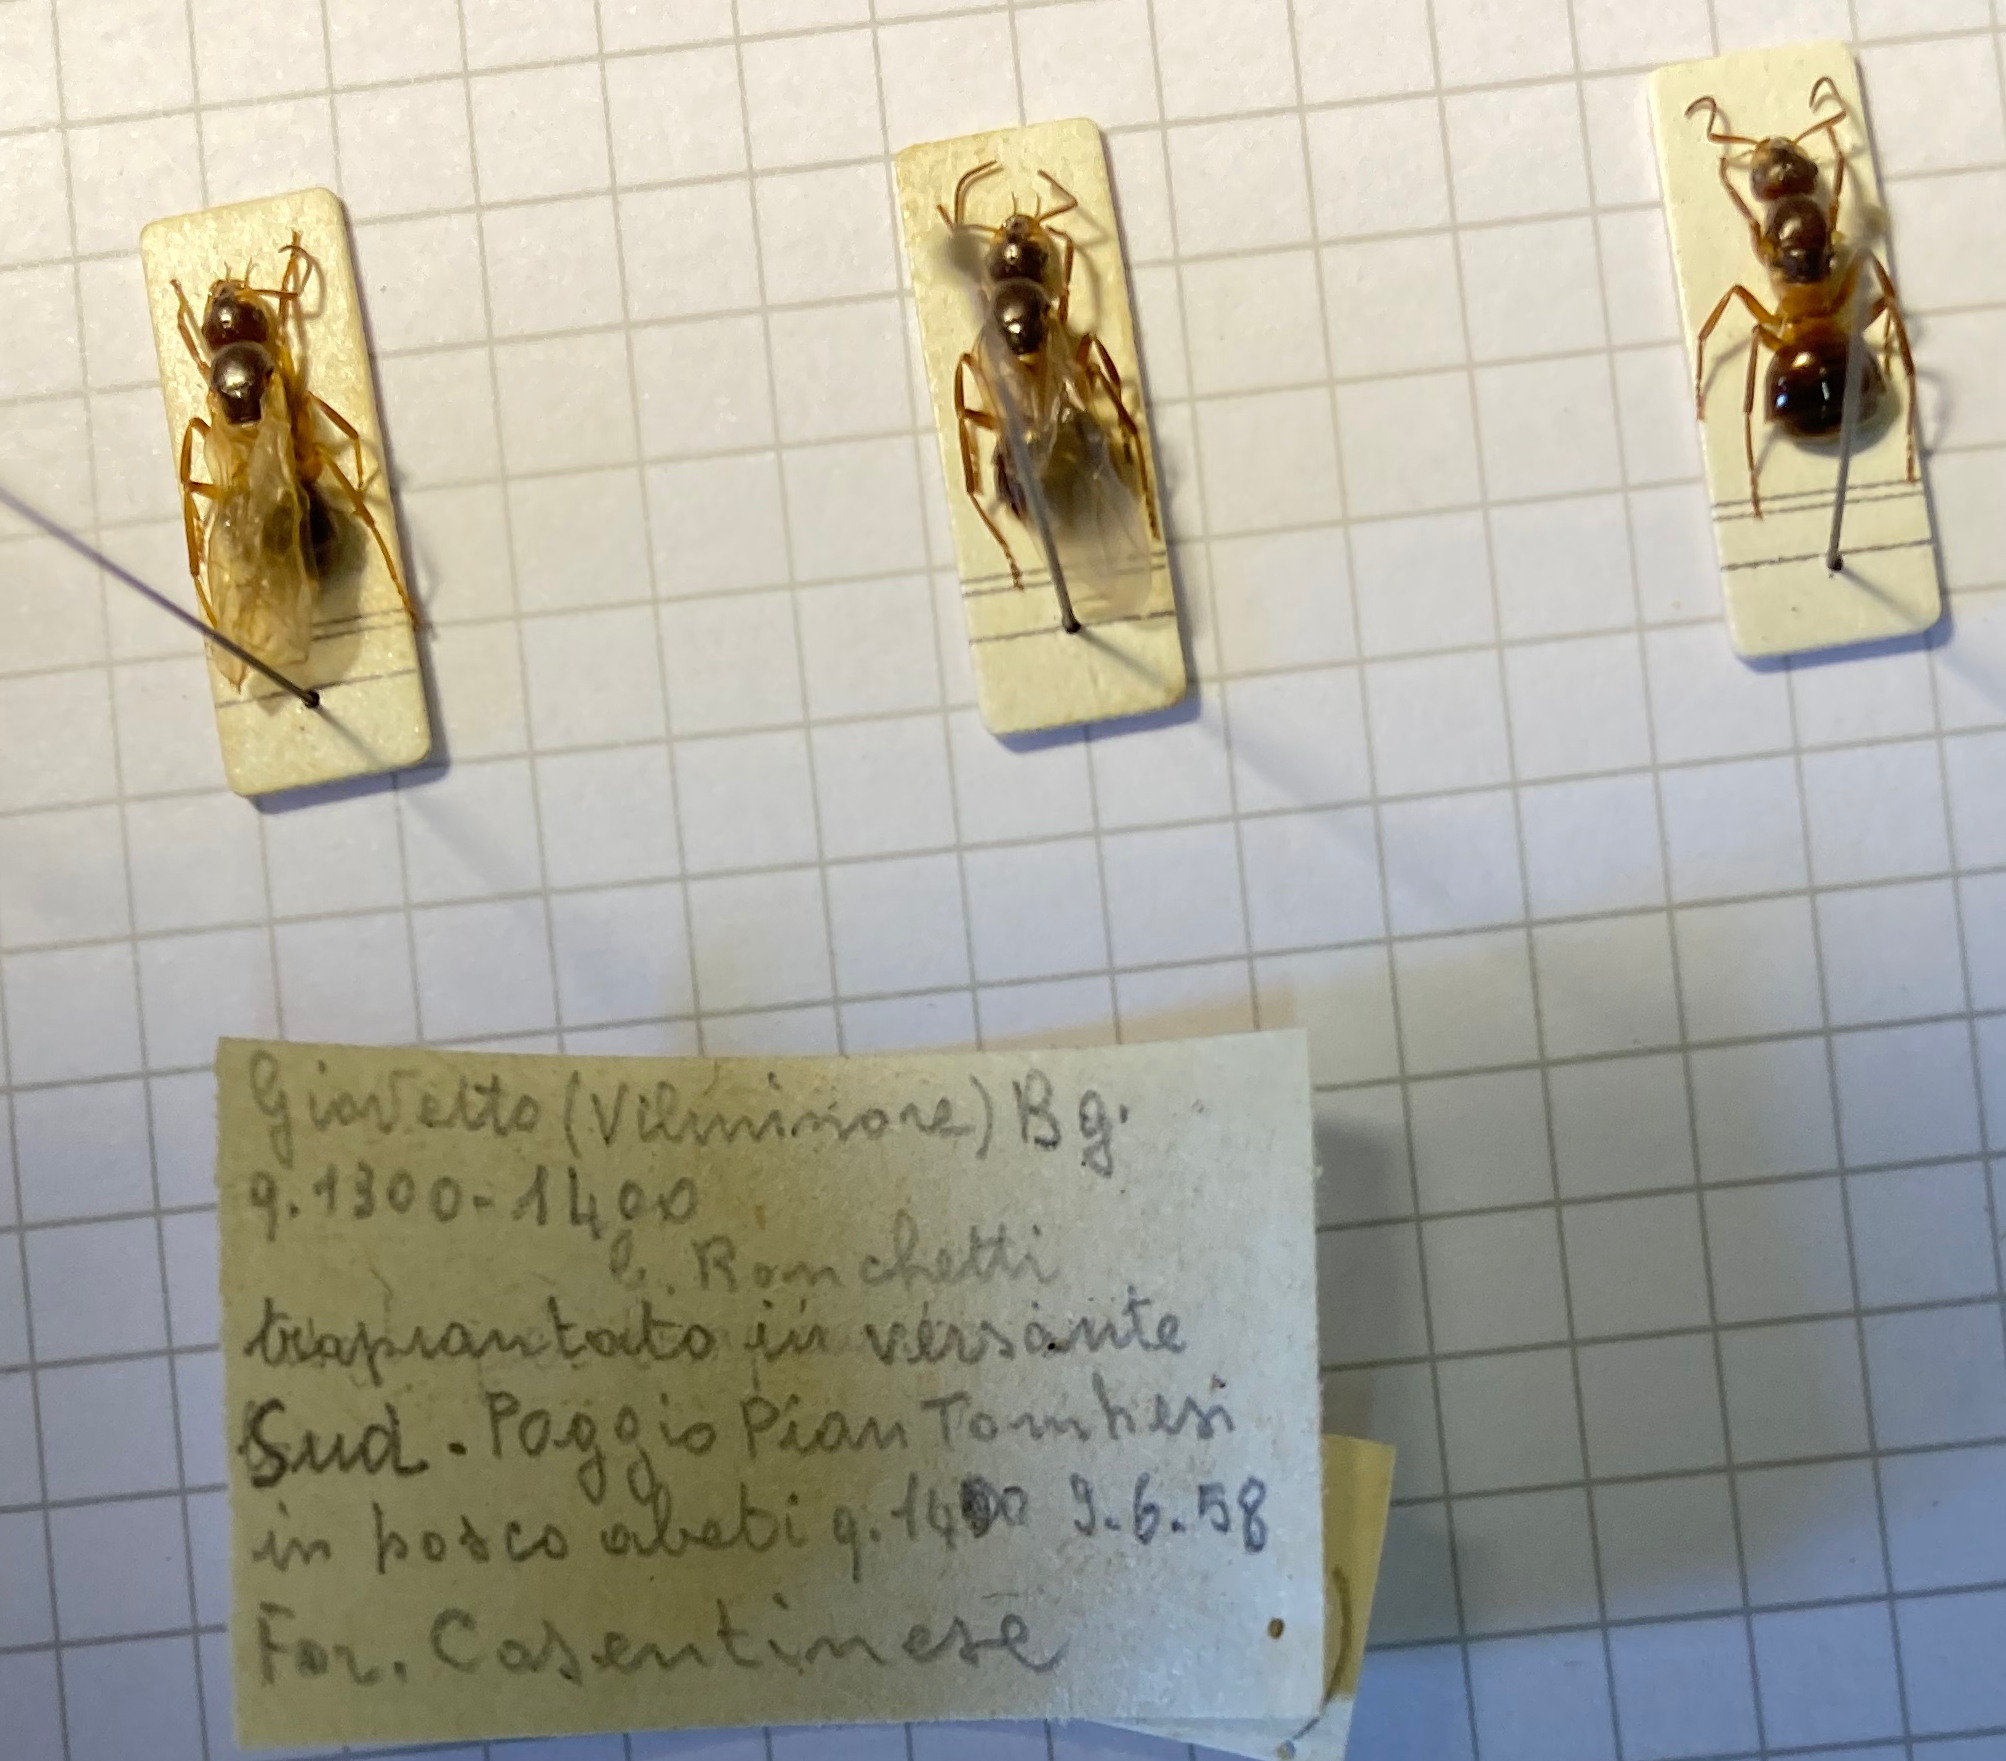 Giovetto (Vilminore) Bg.
q. 1300-1400
l. Ronchetti
trapiantato in versante
Sud. Poggio Pian Tombesi
in bosco abeti q. 1400 9.6.58
For. Casentinese